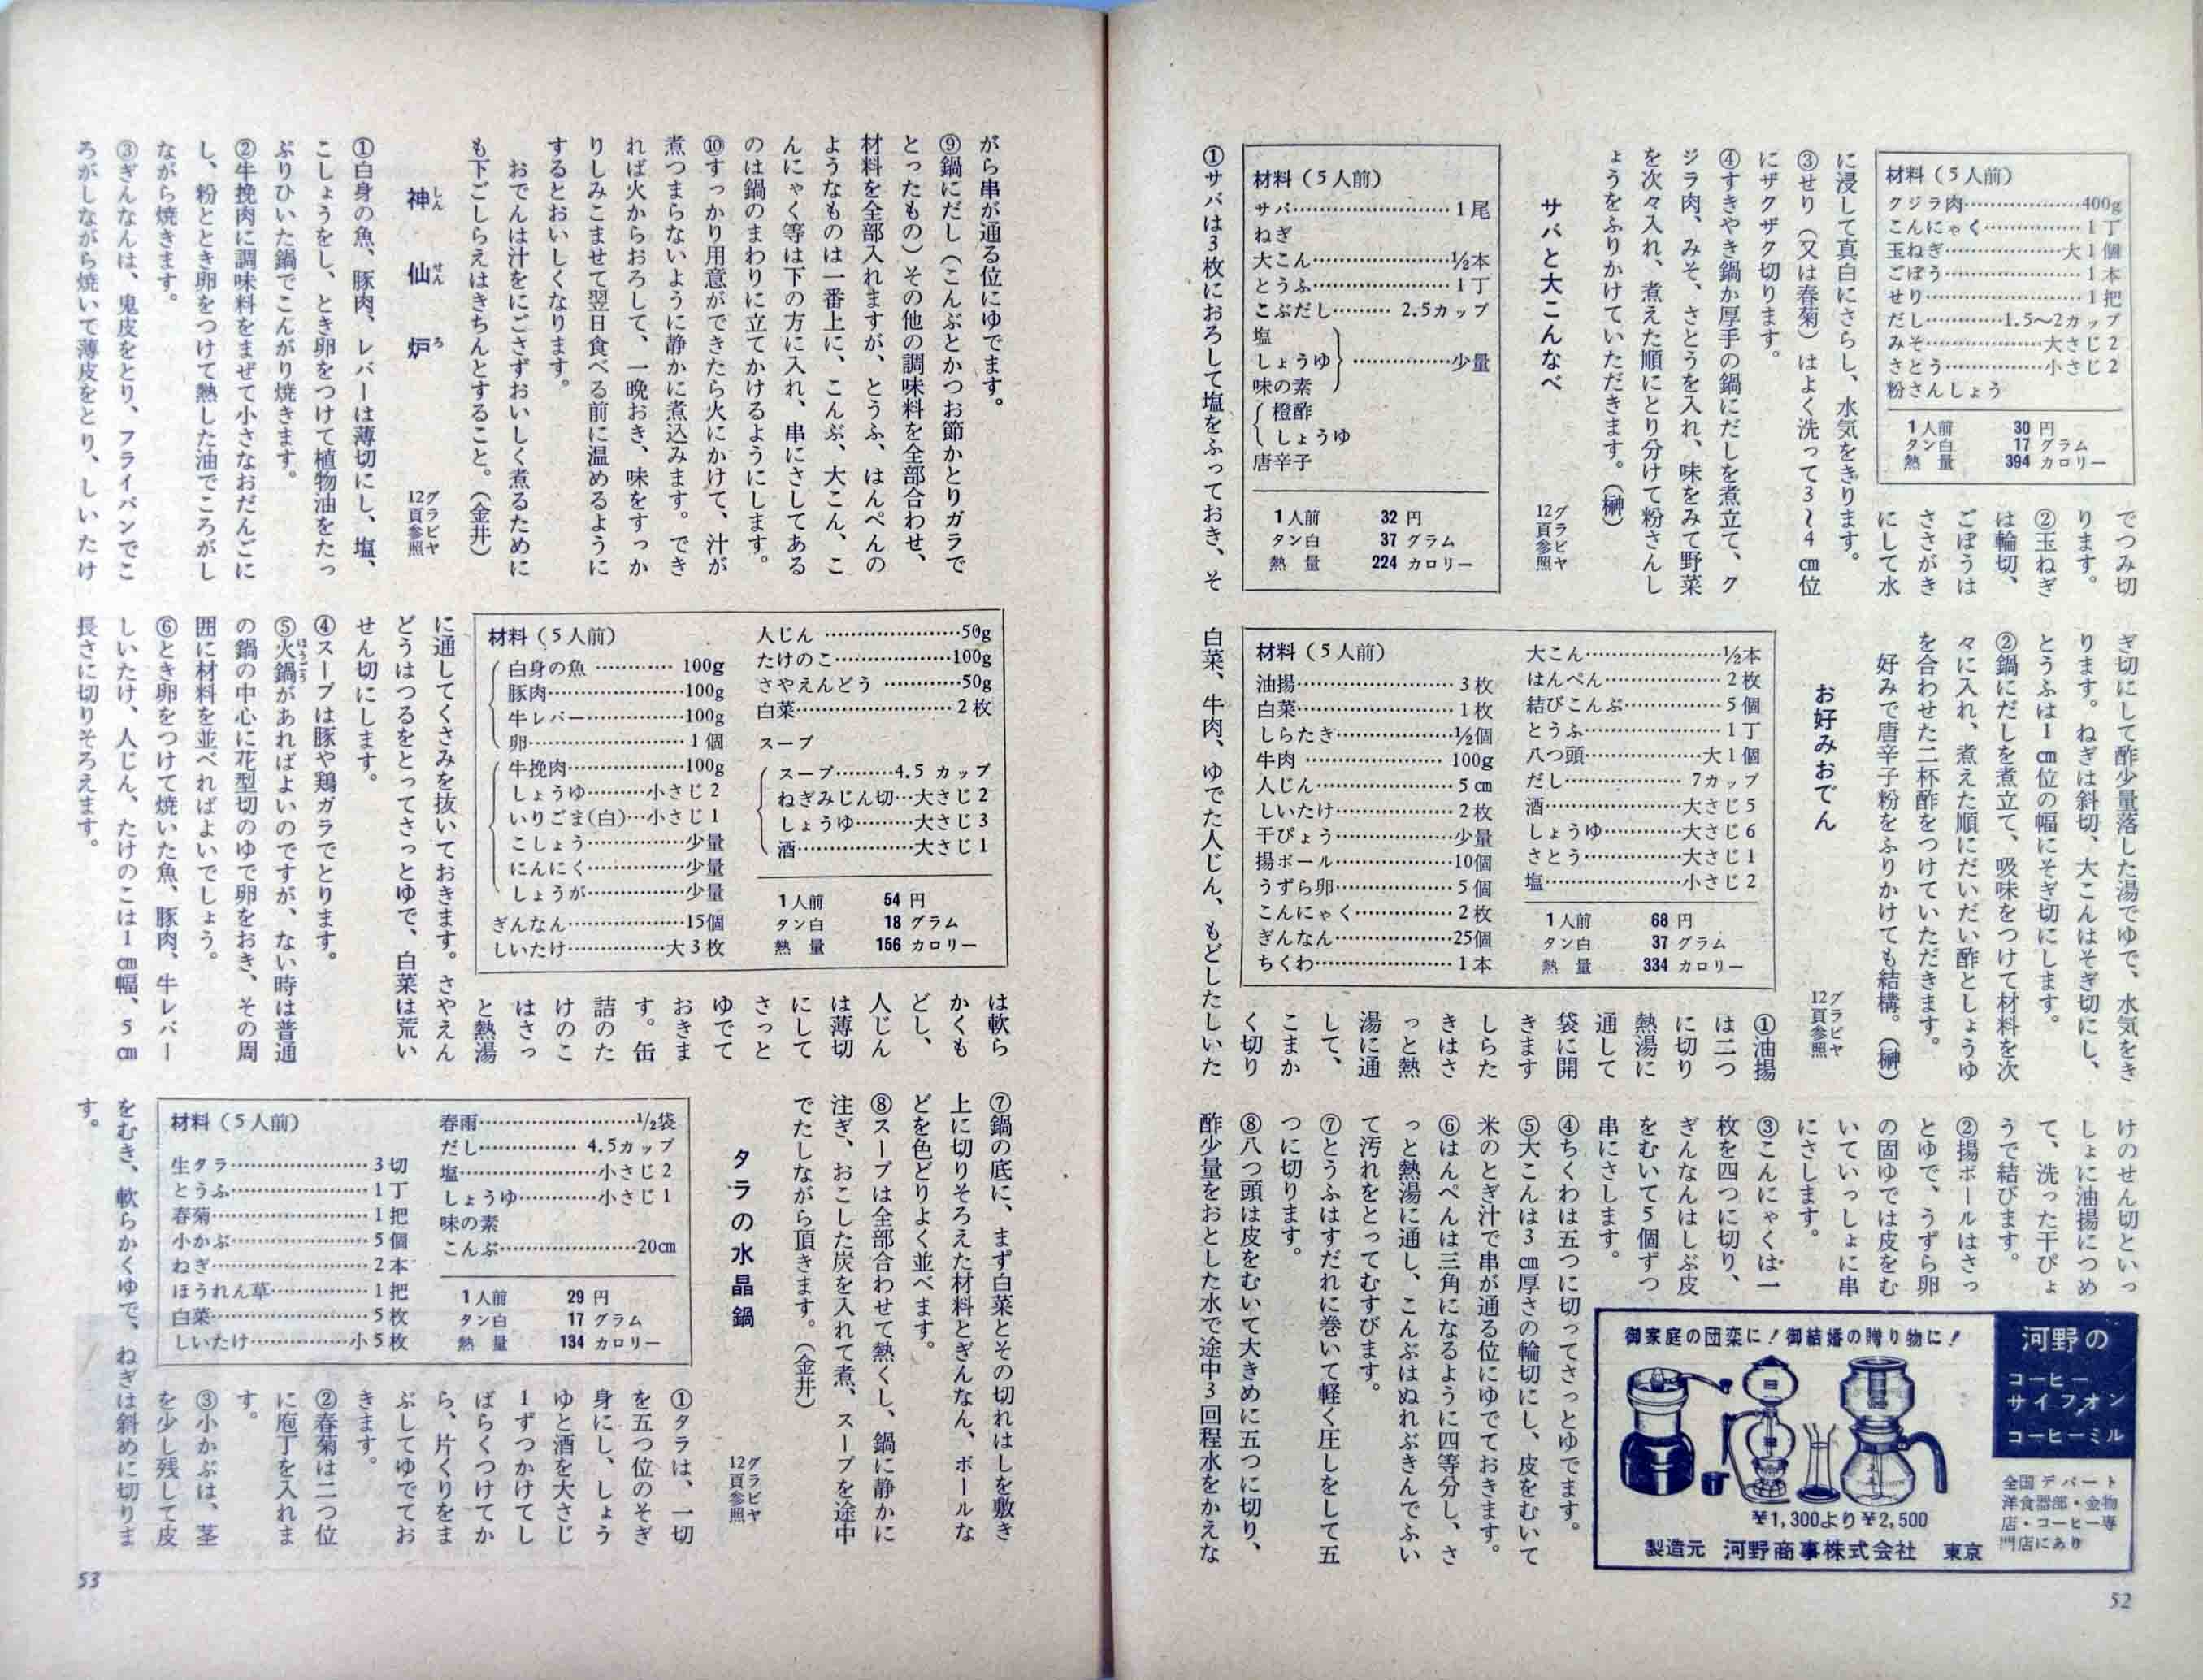 材料（5人前）
クジラ肉…………400g
こんにゃく…………1丁
玉ねぎ…………大1個
ごぼう…………1本
せり…………1把
だし…………1.5〜2カップ
みそ…………大さじ2
さとう…………小さじ2
粉さんしょう
1人前 30円
タン白 17グラム
熱量 394カロリー
でつみ切
ります。
②玉ねぎ
は輪切、
ごぼうは
ささがき
にして水
に浸して真白にさらし、水気をきります。
③せり（又は春菊）はよく洗って3〜4㎝位
にザクザク切ります。
④すきやき鍋か厚手の鍋にだしを煮立て、ク
ジラ肉、みそ、さとうを入れ、味をみて野菜
を次々入れ、煮えた順にとり分けて粉さんし
ょうをふりかけていただきます。（榊）
サバと大こんなべ
グラビヤ
12頁参照
材料（5人前）
サバ…………1尾
ねぎ
大こん…………½本
とうふ…………1丁
こぶだし…………2.5カップ
塩
しょうゆ…………少量
味の素
橙酢
しょうゆ
唐辛子
1人前 32円
タン白 37グラム
熱量 224カロリー
①サバは3枚におろして塩をふっておき、そ
ぎ切にして酢少量落した湯でゆで、水気をき
ります。ねぎは斜切、大こんはそぎ切にし、
とうふは1㎝位の幅にそぎ切にします。
②鍋にだしを煮立て、吸味をつけて材料を次
々に入れ、煮えた順にだいだい酢としょうゆ
を合わせた二杯酢をつけていただきます。
好みで唐辛子粉をふりかけても結構。（榊）
お好みおでん
グラビヤ
12頁参照
材料（5人前）
油揚…………3枚
白菜…………1枚
しらたき…………½個
牛肉…………100g
人じん…………5㎝
しいたけ…………2枚
干ぴょう…………少量
揚ボール…………10個
うずら卵…………5個
こんにゃく…………2枚
ぎんなん…………25個
ちくわ…………1本
大こん…………½本
はんぺん…………2枚
結びこんぶ…………5個
とうふ…………1丁
八つ頭…………大1個
だし…………7カップ
酒…………大さじ5
しょうゆ…………大さじ6
さとう…………大さじ1
塩…………小さじ2
1人前 68円
タン白 37グラム
熱量 334カロリー
①油揚
は二つ
に切り
熱湯に
通して
袋に開
きます
しらた
きはさ
っと熱
湯に通
して、
こまか
く切り
白菜、牛肉、ゆでた人じん、もどしたしいた
けのせん切といっ
しょに油揚につめ
て、洗った干ぴょ
うで結びます。
②揚ボールはさっ
とゆで、うずら卵
の固ゆでは皮をむ
いていっしょに串
にさします。
③こんにゃくは一
枚を四つに切り、
ぎんなんはしぶ皮
をむいて5個ずつ
串にさします。
④ちくわは五つに切ってさっとゆでます。
⑤大こんは3㎝厚さの輪切にし、皮をむいて
米のとぎ汁で串が通る位にゆでておきます。
⑥はんぺんは三角になるように四等分し、さ
っと熱湯に通し、こんぶはぬれぶきんでふい
て汚れをとってむすびます。
⑦とうふはすだれに巻いて軽く圧しをして五
つに切ります。
⑧八つ頭は皮をむいて大きめに五つに切り、
酢少量をおとした水で途中3回程水をかえな
河野の
コーヒー
サイフォン
コーヒーミル
御家庭の団楽に！御結婚の贈り物に！
全国デパート
洋食器部・金物
店・コーヒー専
門店にあり
¥1,300より¥2,500
製造元 河野商事株式会社 東京
52
がら串が通る位にゆでます。
⑨鍋にだし（こんぶとかつお節かとりガラで
とったもの）その他の調味料を全部合わせ、
材料を全部入れますが、とうふ、はんぺんの
ようなものは一番上に、こんぶ、大こん、こ
んにゃく等は下の方に入れ、串にさしてある
のは鍋のまわりに立てかけるようにします。
⑩すっかり用意ができたら火にかけて、汁が
煮つまらないように静かに煮込みます。でき
れば火からおろして、一晩おき、味をすっか
りしみこませて翌日食べる前に温めるように
するとおいしくなります。
おでんは汁をにごさずおいしく煮るために
も下ごしらえはきちんとすること。（金井）
神仙炉
しんせんろ
グラビヤ
12頁参照
①白身の魚、豚肉、レバーは薄切にし、塩、
こしょうをし、とき卵をつけて植物油をたっ
ぷりひいた鍋でこんがり焼きます。
②牛挽肉に調味料をまぜて小さなおだんごに
し、粉ととき卵をつけて熱した油でころがし
ながら焼きます。
③ぎんなんは、鬼皮をとり、フライパンでこ
ろがしながら焼いて薄皮をとり、しいたけ
材料（5人前）
白身の魚…………100g
豚肉…………100g
牛レバー…………100g
卵…………1個
牛挽肉…………100g
しょうゆ…………小さじ2
いりごま(白)…小さじ1
こしょう…………少量
にんにく…………少量
しょうが…………少量
ぎんなん…………15個
しいたけ…………大3枚
人じん…………50g
たけのこ…………100g
さやえんどう…………50g
白菜…………2枚
スープ
スープ…………4.5カップ
ねぎみじん切…大さじ2
しょうゆ…………大さじ3
酒…………大さじ1
1人前 54円
タン白 18グラム
熱量 156カロリー
は軟ら
かくも
どし、
人じん
は薄切
にして
さっと
ゆでて
おきま
す。缶
詰のた
けのこ
はさっ
と熱湯
に通してくさみを抜いておきます。さやえん
どうはつるをとってさっとゆで、白菜は荒い
せん切にします。
④スープは豚や鶏ガラでとります。
⑤火鍋があればよいのですが、ない時は普通
の鍋の中心に花型切のゆで卵をおき、その周
囲に材料を並べればよいでしょう。
⑥とき卵をつけて焼いた魚、豚肉、牛レバー
しいたけ、人じん、たけのこは1㎝幅、5㎝
長さに切りそろえます。
⑦鍋の底に、まず白菜とその切れはしを敷き
上に切りそろえた材料とぎんなん、ボールな
どを色どりよく並べます。
⑧スープは全部合わせて熱くし、鍋に静かに
注ぎ、おこした炭を入れて煮、スープを途中
でたしながら頂きます。（金井）
タラの水晶鍋
グラビヤ
12頁参照
材料（5人前）
生タラ…………3切
とうふ…………1丁
春菊…………1把
小かぶ…………5個
ねぎ…………2本
ほうれん草…………1把
白菜…………5枚
しいたけ…………小5枚
春雨…………½袋
だし…………4.5カップ
塩…………小さじ2
しょうゆ…………小さじ1
味の素
こんぶ…………20㎝
1人前 29円
タン白 17グラム
熱量 134カロリー
①タラは、一切
を五つ位のそぎ
身にし、しょう
ゆと酒を大さじ
1ずつかけてし
ばらくつけてか
ら、片くりをま
ぶしてゆでてお
きます。
②春菊は二つ位
に庖丁を入れま
す。
③小かぶは、茎
を少し残して皮
をむき、軟らかくゆで、ねぎは斜めに切りま
す。
53